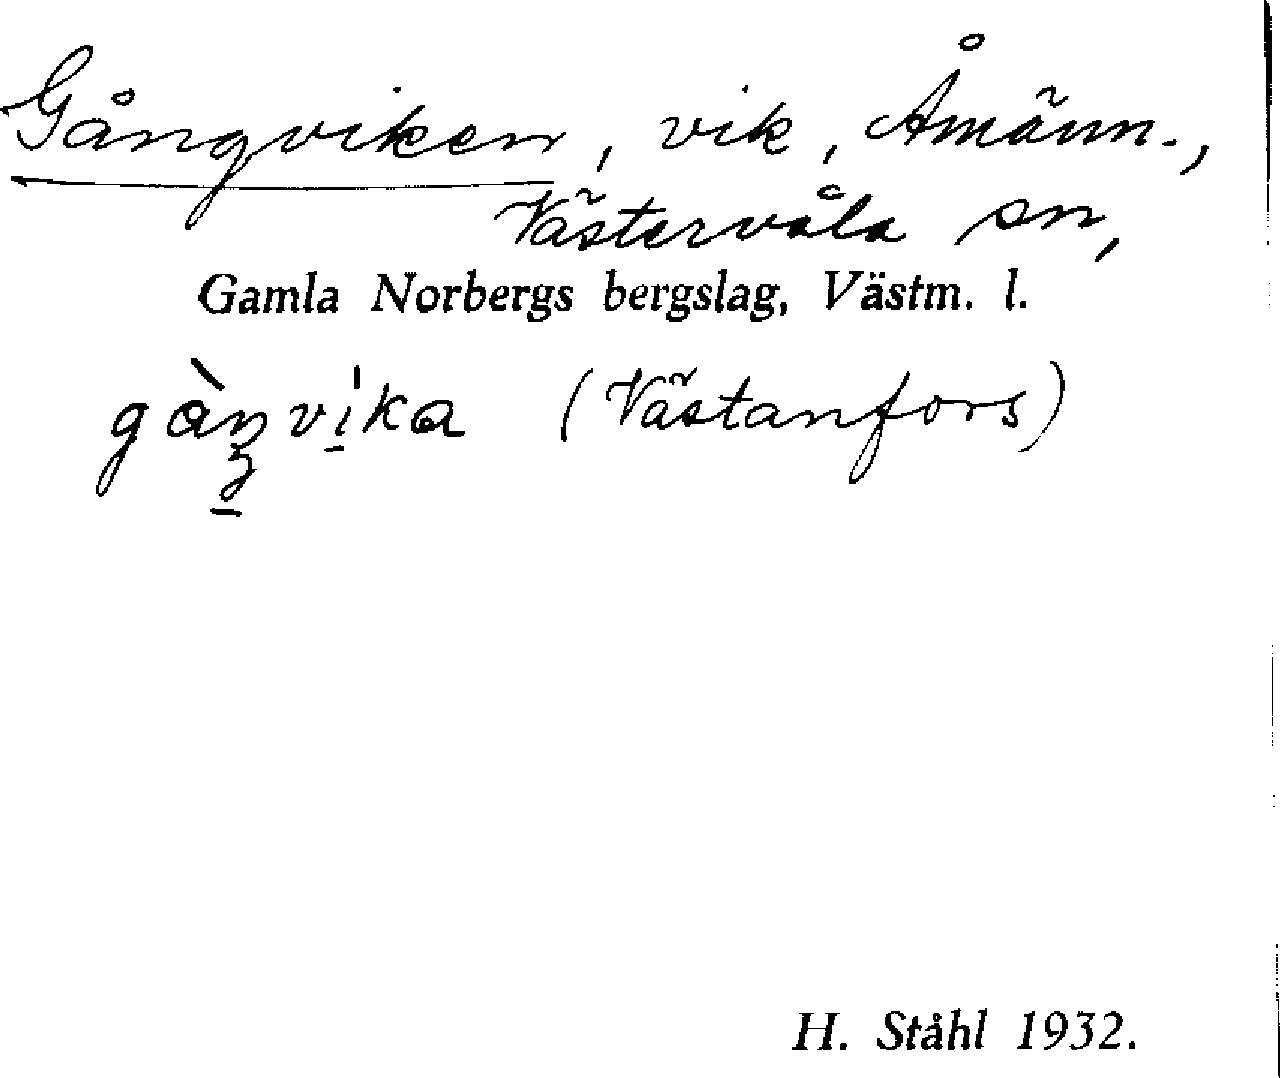 Gångviken, vik, Åmänn.,
Västervåla sn,
Gamla Norbergs bergslag, Västm. l.
(Västanfors)
H. Ståhl 1932.